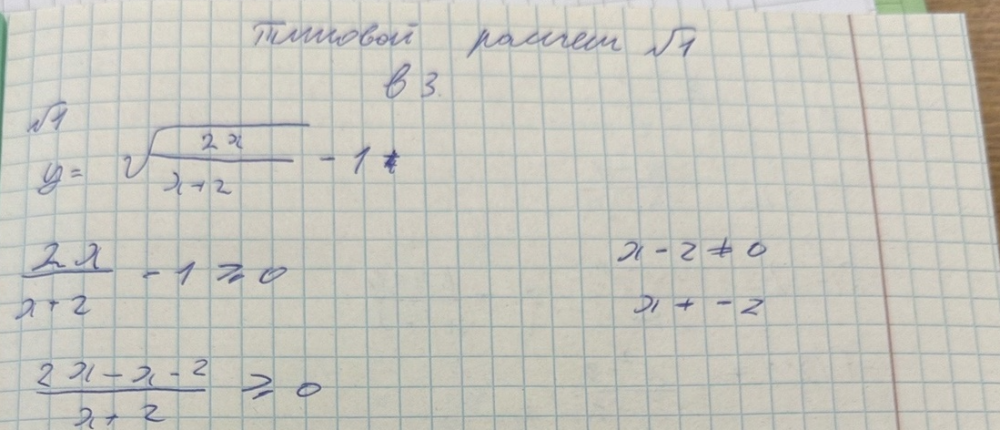 Типовой расчет №1
В 3.
№1
y = √(2x/(x+2)) - 1
2x/(x+2) - 1 ≥ 0
x - 2 ≠ 0
x ≠ -2
(2x - x - 2)/(x + 2) ≥ 0